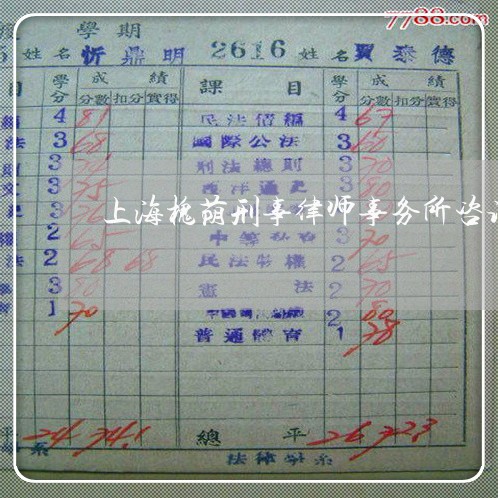 7788.com
學期
5 姓名 忻鼎明 2616 姓名 賈泰德
目 學分 成績 分數 扣分 實得 課目 學分 成績 分數 扣分 實得
4 81 民法債編 4 67
法 3 68 國際公法 3 60
3 刑法總則 3 70
文 3 75 西洋通史 3 80
史 3
上海槐荫刑事律师事务所咨
權 2 65 3 70
法 2 68 68 民法物權 2 65
3 80 憲法 2 70
育 1 70 2 80
普通體育 1 78
平 24 74.1 總平 26 72.3
系 法律學系